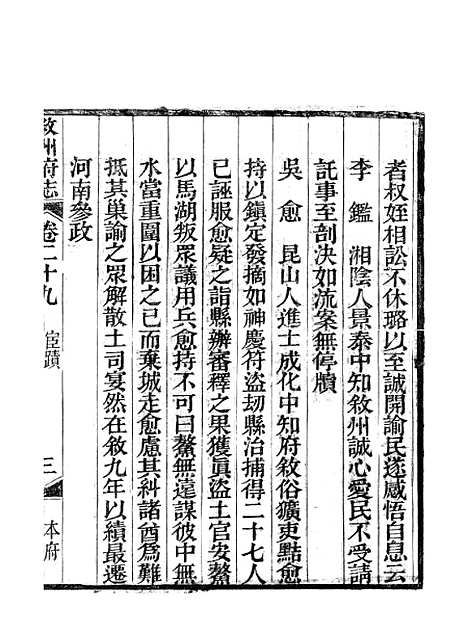 者叔姪相訟不休璐以至誠開諭民遂感悟自息云
李鑑 湘陰人景泰中知敘州誠心愛民不受請
託事至剖决如流案無停牘
吳愈 昆山人進士成化中知府敘俗獷吏黠愈
持以鎮定發摘如神慶符盜刼縣治捕得二十七人
已誣服愈疑之詣縣辦審釋之果獲眞盜土官安鰲
以馬湖叛眾議用兵愈持不可曰鰲無遠謀彼中無
水當重圍以困之已而棄城走愈慮其糾諸酋爲難
抵其巢諭之眾解散土司宴然在敘九年以績最遷
河南參政
敘州府志 卷二十九 宦蹟 三 本府